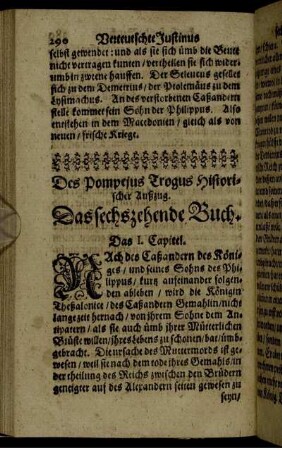 290 Verteutschte Justinus
selbst gewendet: und als sie sich ümb die Beute
nicht vertragen kunten / vertheilen sie sich wider-
umb in zweene hauffen. Der Seleucus gesellet
sich zu dem Demetrius / der Ptolemäus zu dem
Lysimachus. An des verstorbenen Caßandern
stelle kommet sein Sohn der Philippus. Also
entstehen in dem Macedonien / gleich als von
neuen / frische Kriege.
Des Pompejus Trogus Histori-
scher Außzug.
Das sechszehende Buch.
Das I. Capitel.
NAch des Caßandern des Köni-
ges / und seines Sohns des Phi-
lippus / kurtz aufeinander folgen-
den ableben / wird die Königin
Theßalonice / des Caßandern Gemahlin / nicht
lange zeit hernach / von jhrem Sohne dem An-
tipatern / als sie auch ümb jhrer Mütterlichen
Brüste willen / jhres lebens zu schonen / bat / ümb-
gebracht. Die ursache des Muttermords ist ge-
wesen / weil sie nach dem tode jhres Gemahls / in
der theilung des Reichs zwischen den Brüdern
geneigter auf des Alexandern seiten gewesen zu
seyn /